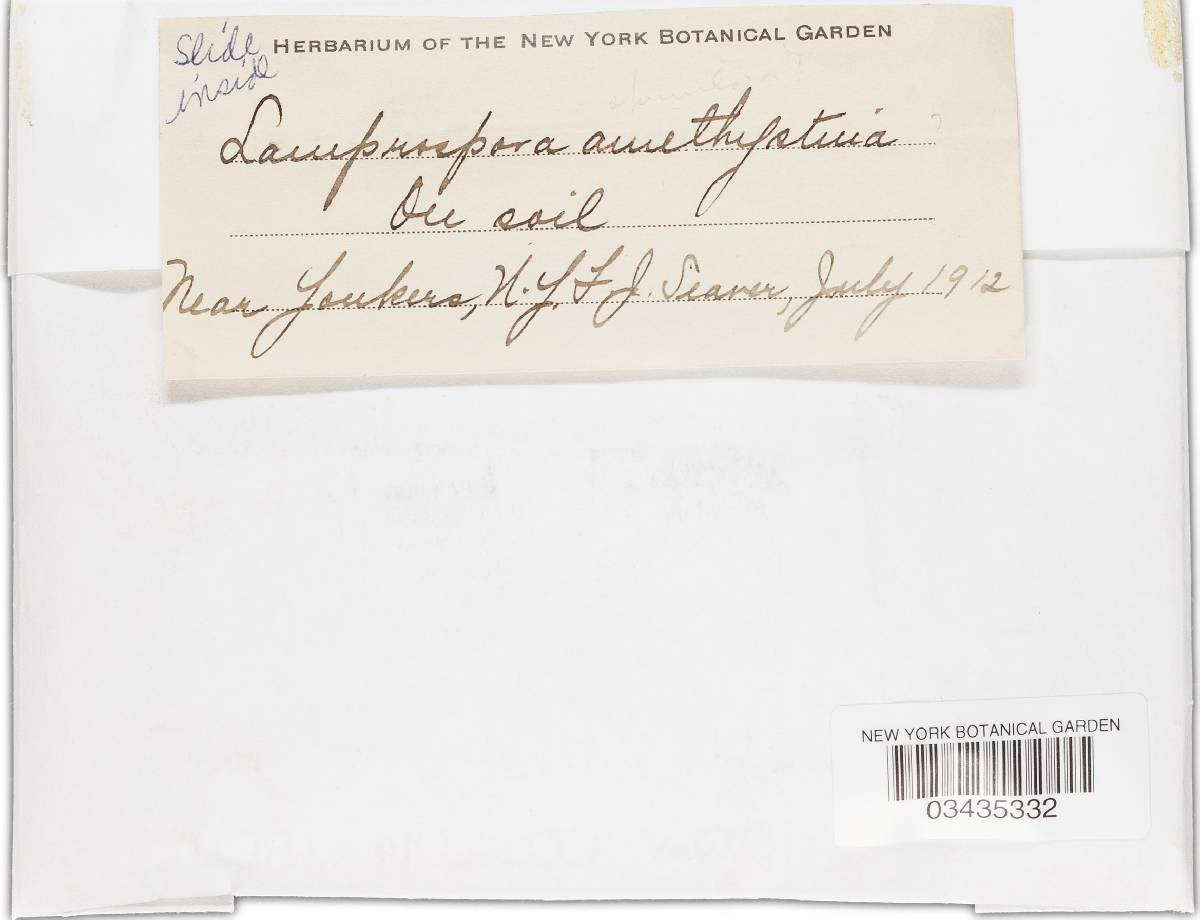 Slide
inside
HERBARIUM OF THE NEW YORK BOTANICAL GARDEN
Lamprospora amethystina
On soil
Near Yonkers, N.Y. F. J. Seaver, July 1912
NEW YORK BOTANICAL GARDEN
03435332